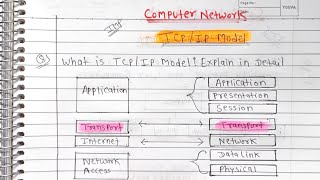 Page No.
YOUVA
Imp
Computer Network
TCP/IP-Model
Q) What is TCP/IP Model? Explain in Detail
Application
Application
Presentation
Session
Transport
Transport
Internet
Network
Network Access
Data Link
Physical